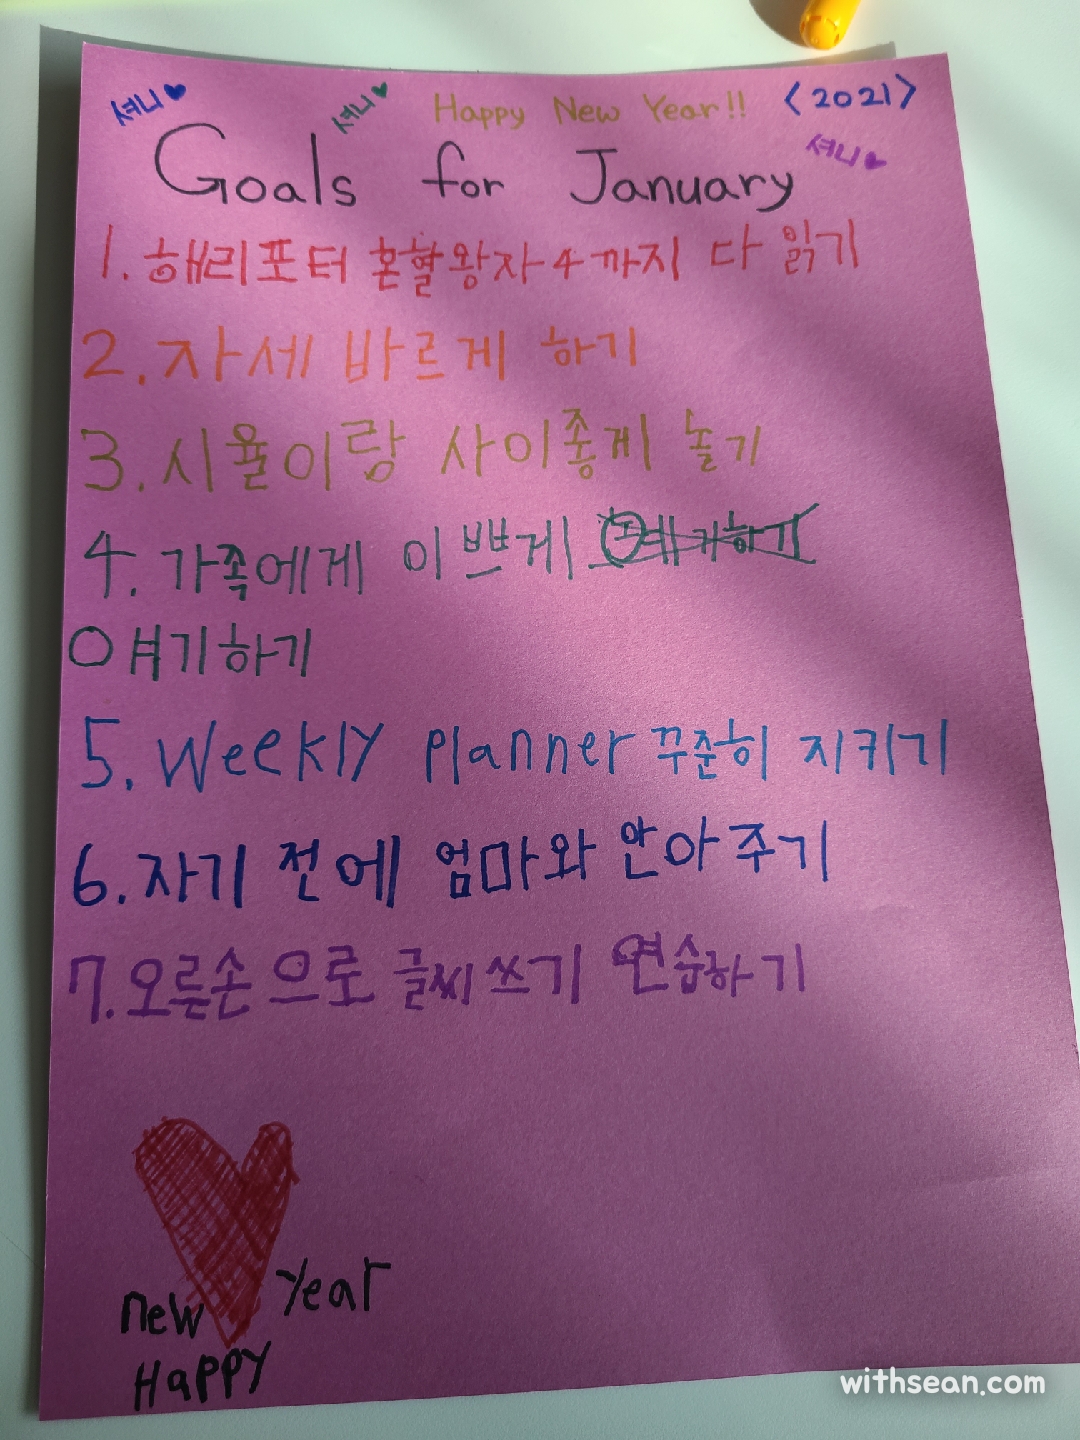 셔니♥ 셔니♥ Happy New Year!! <2021>
Goals for January 셔니♥
1. 해리포터 혼혈왕자4까지 다 읽기
2. 자세 바르게 하기
3. 시율이랑 사이좋게 놀기
4. 가족에게 이쁘게
얘기하기
5. Weekly planner 꾸준히 지키기
6. 자기 전에 엄마와 안아주기
7. 오른손으로 글씨쓰기 연습하기
new year
Happy
withsean.com